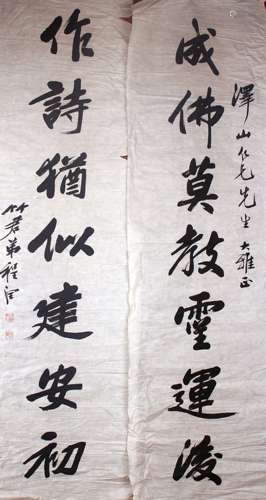 澤山仁兄先生大雅正
成佛莫教靈運後
作詩猶似建安初
竹君弟程